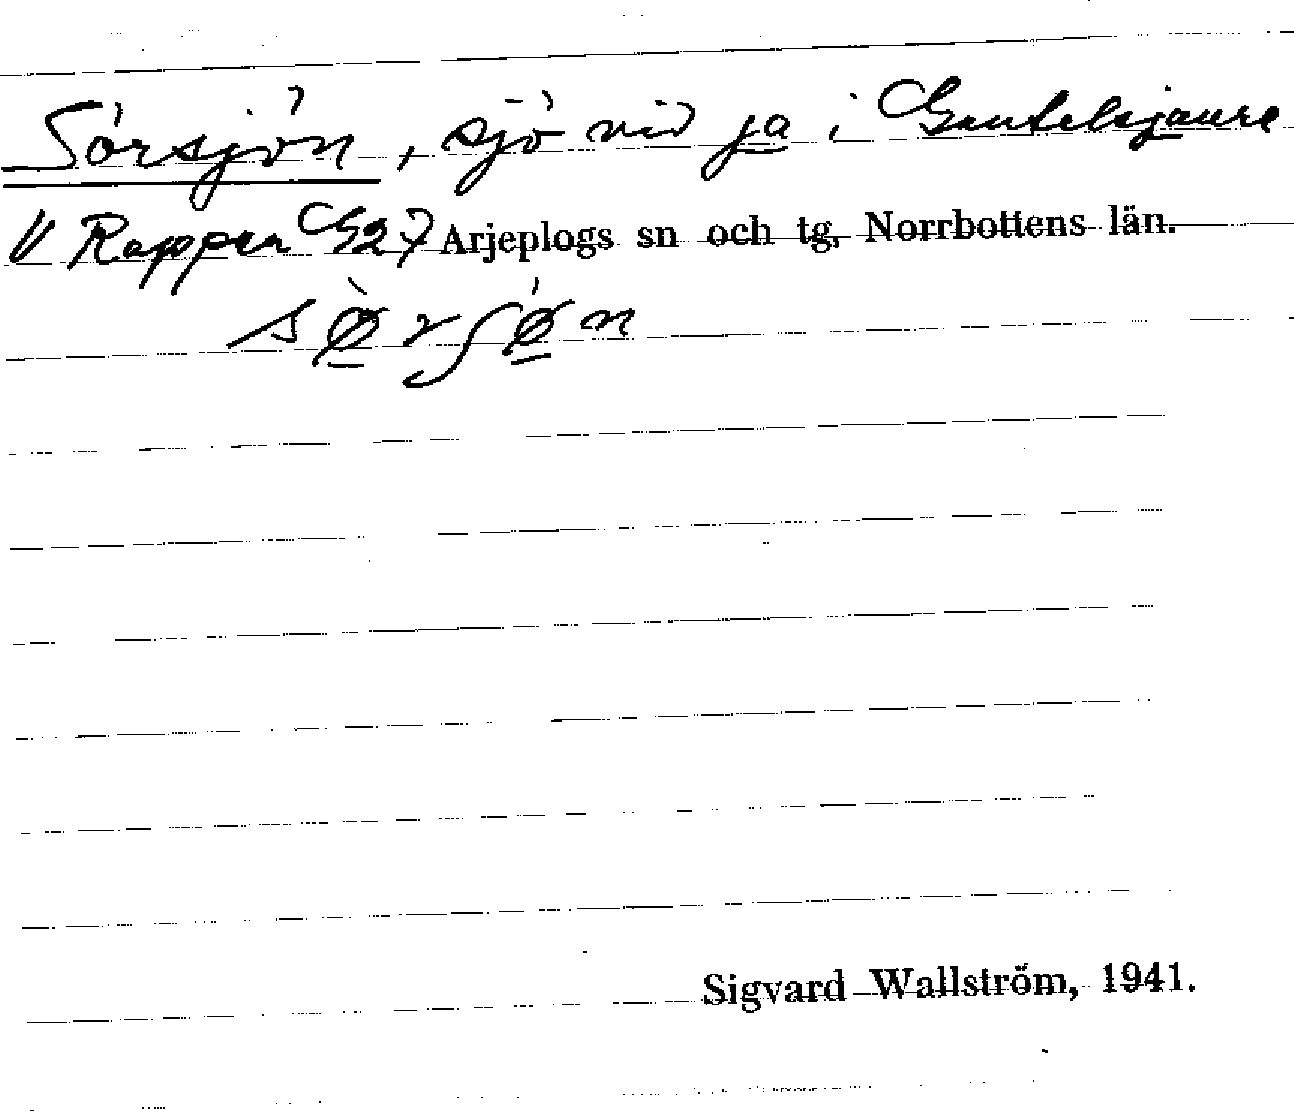 Sörsjön, sjö vid ja i Gautelisjaure
V Rappen G27 Arjeplogs sn och tg, Norrbottens län.
sø̀rʃǿn
Sigvard Wallström, 1941.